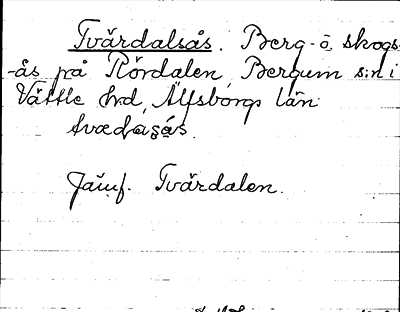 Tvärdalsås. Berg- o. skogs-
-ås på Rördalen, Bergum s:n i
Vättle hrd, Älfsborgs län.
Jämf. Tvärdalen.